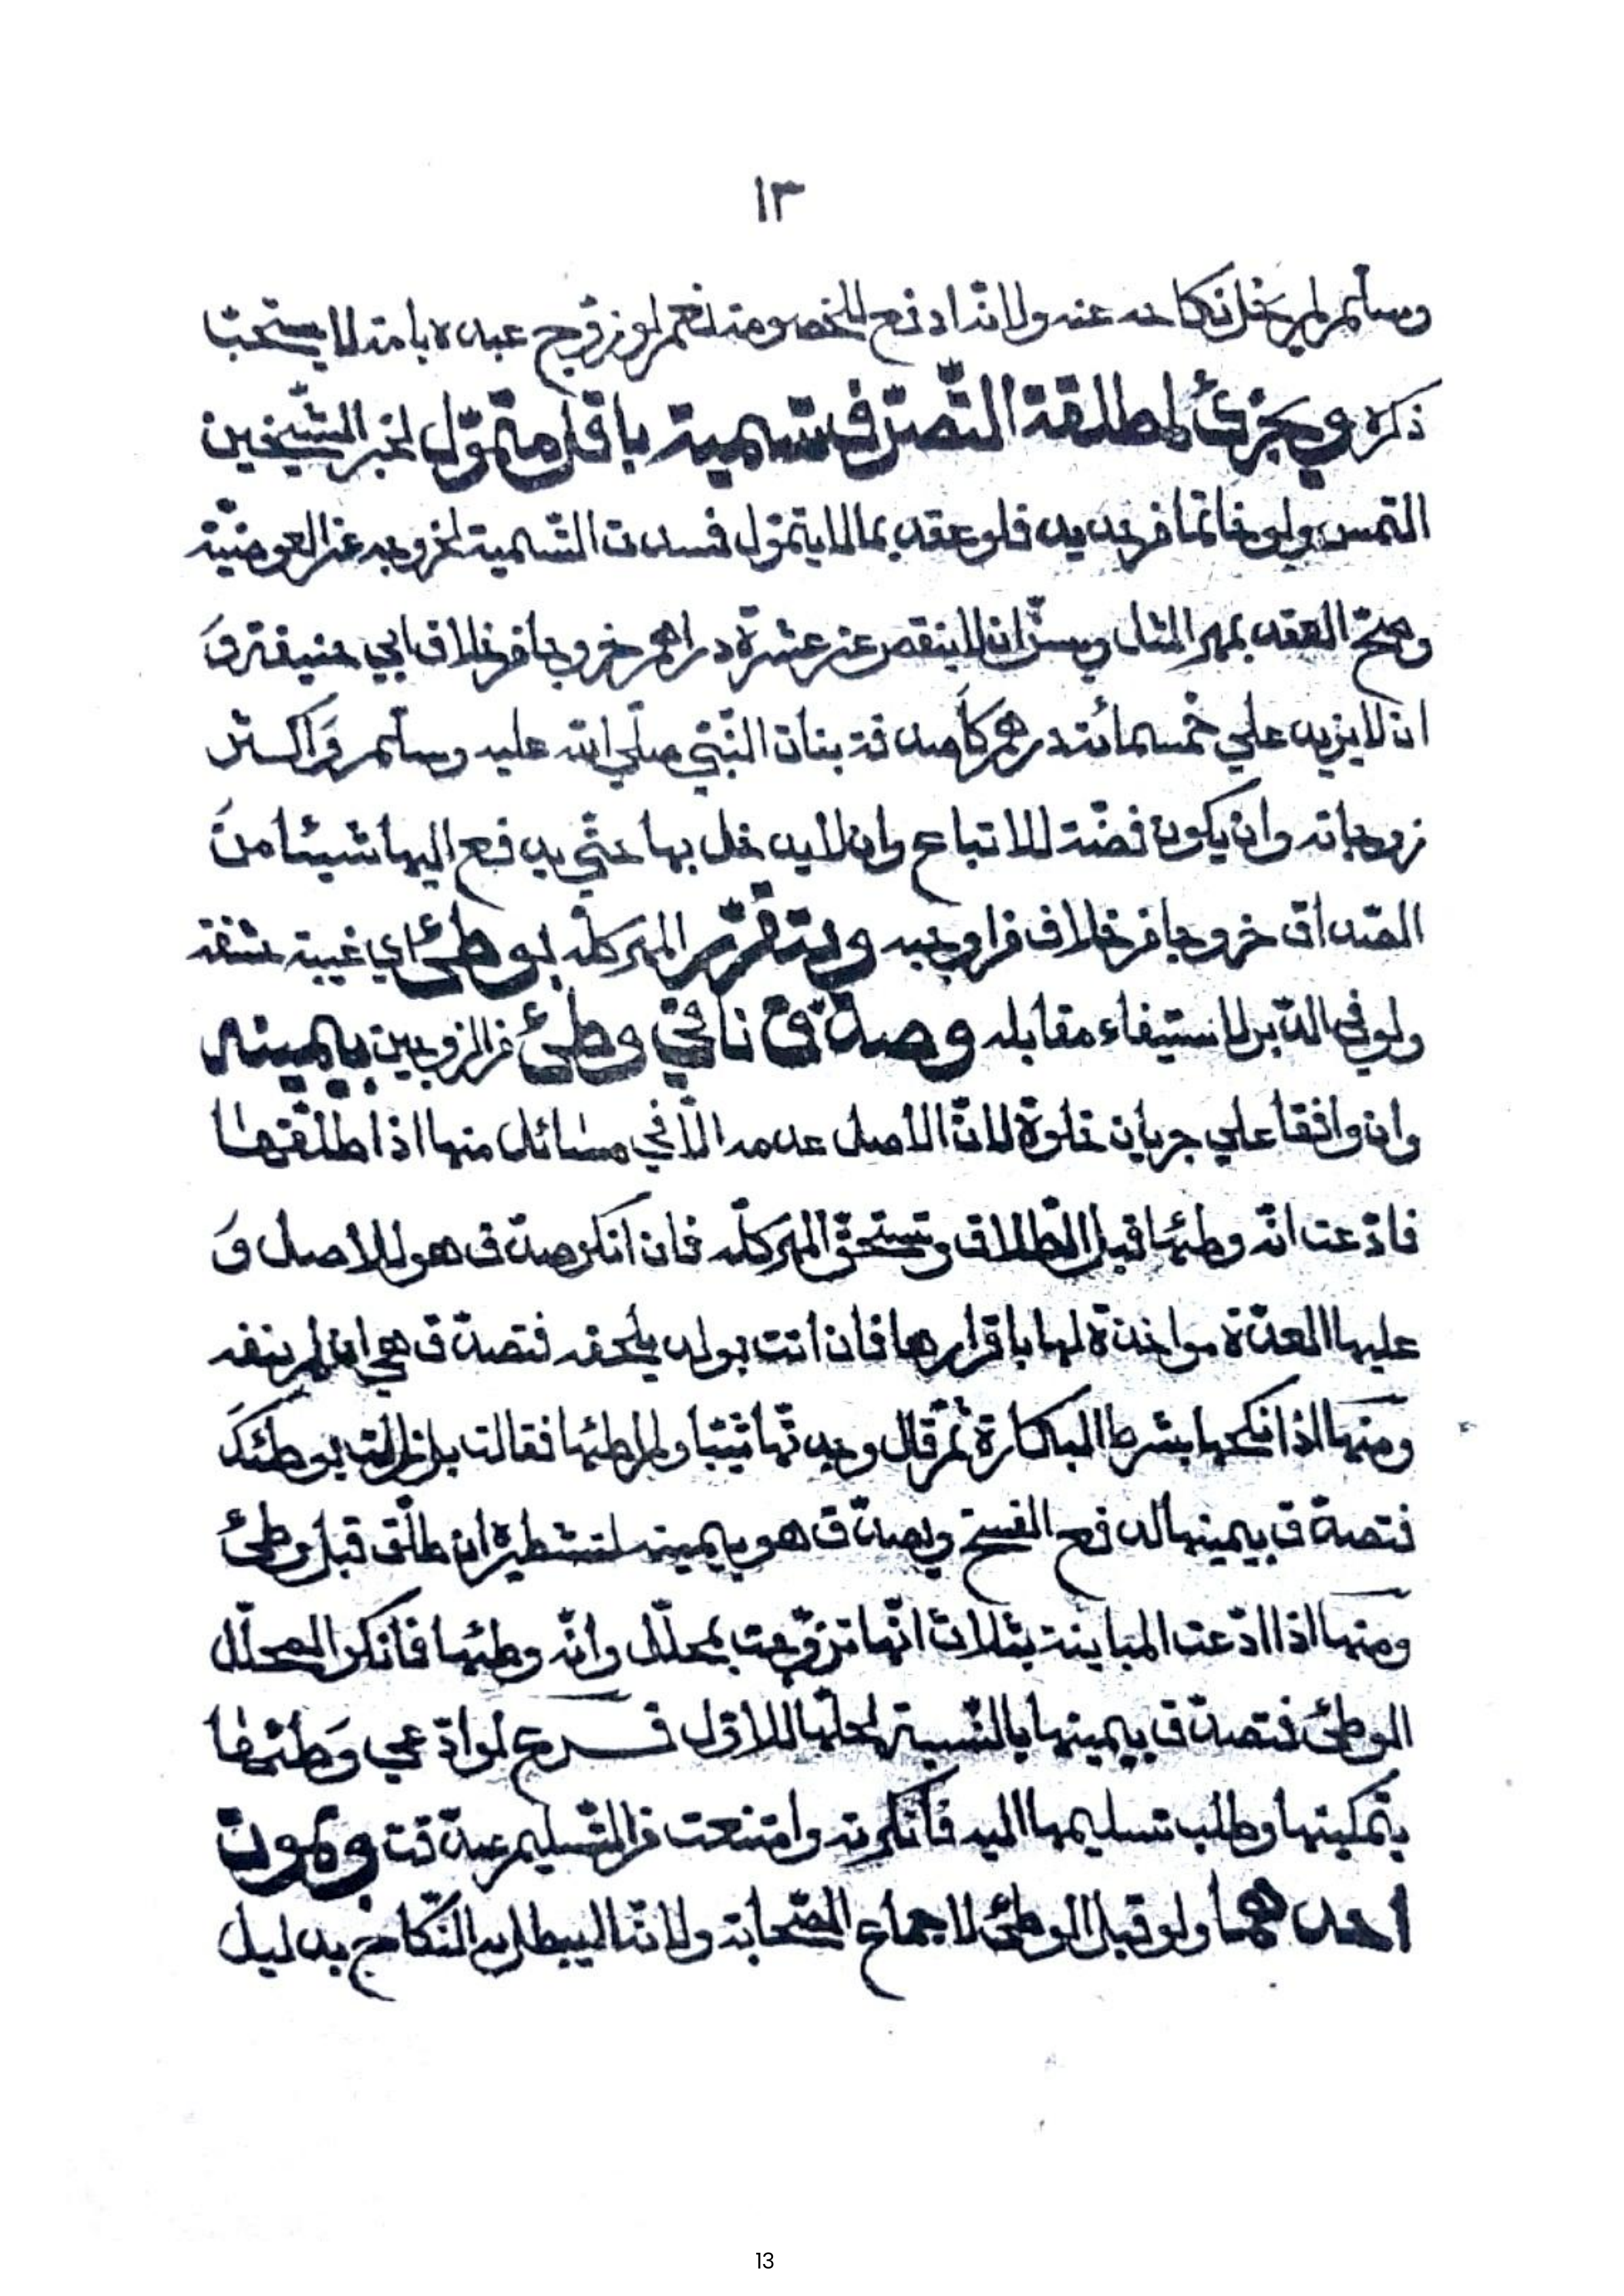 ١٣
وسلّم لم يخل نكاحه عنه ولانّه ادفع للخصومة نعم لو زوّج عبده بامته لا يستحبّ
ذكره ويجزئ لمطلقة التصرّف تسمية باقل متموّل لخبر الشّيخين
التمس ولو خاتما من حديد فلو عقد بما لا يتموّل فسدت التّسمية لخروجه عن العوضيّة
وصحّ العقد بمهر المثل ويسنّ ان لا ينقص عن عشرة دراهم خروجا من خلاف ابي حنيفة وَ
ان لا يزيد علي خمسمائة درهم كاصدقة بنات النّبيّ صلّي الله عليه وسلّم وَاكثر
زوجاته وان يكون فضّة للاتباع وان لا يدخل بها حتّي يدفع اليها شيئا منَ
الصّداق خروجا من خلاف من اوجبه ويتقرّر المهر كلّه بوطئ اي غيبة حشفة
ولو في الدّبر لاستيفاء مقابله وصدّق نافي وطئ من الزّوجين بيمينه
وان وافقا علي جريان خلوة لانّ الاصل عدمه الّا في مسائل منها اذا طلّقها
فادّعت انّه وطئها قبل الطّلاق وتستحقّ المهر كلّه فان انكر صدّق هو للاصل وَ
عليها العدّة مواخذة لها باقرارها فان اتت بولد يلحقه فتصدّق هي ان لم ينفه
ومنها اذا نكحها بشرط البكارة ثمّ قال وجدتها ثيّبا ولم اطئها فقالت بل زالت بوطئكَ
فتصدّق بيمينها لدفع الفسخ ويصدّق هو بيمينه لتشطيره ان طلّق قبل وطئ
ومنها اذا ادّعت المباينة بثلاث انّها تزوّجت بمحلّل وانّه وطئها فانكر المحلّل
الوطئ فتصدّق بيمينها بالنّسبة لحلّها للاوّل فرع لو ادّعي وَطئها
بتمكينها وطلب تسليمها اليه فانكرته وامتنعت من التّسليم صدّقت وبموت
احدهما ولو قبل الوطئ لاجماع الصّحابة ولانّه لا يبطل به النّكاح بدليل
13